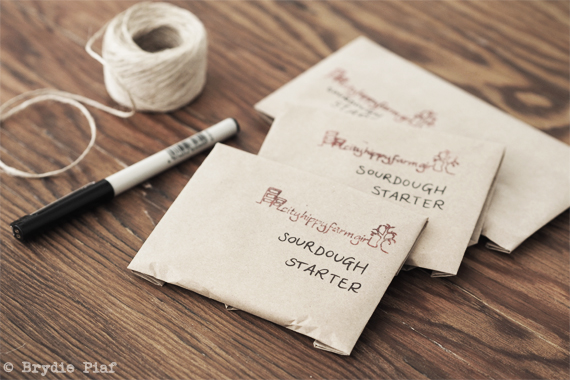 cityhippyfarmgirl
SOURDOUGH
STARTER
cityhippyfarmgirl
SOURDOUGH
STARTER
cityhippyfarmgirl
SOURDOUGH
STARTER
© Brydie Piaf